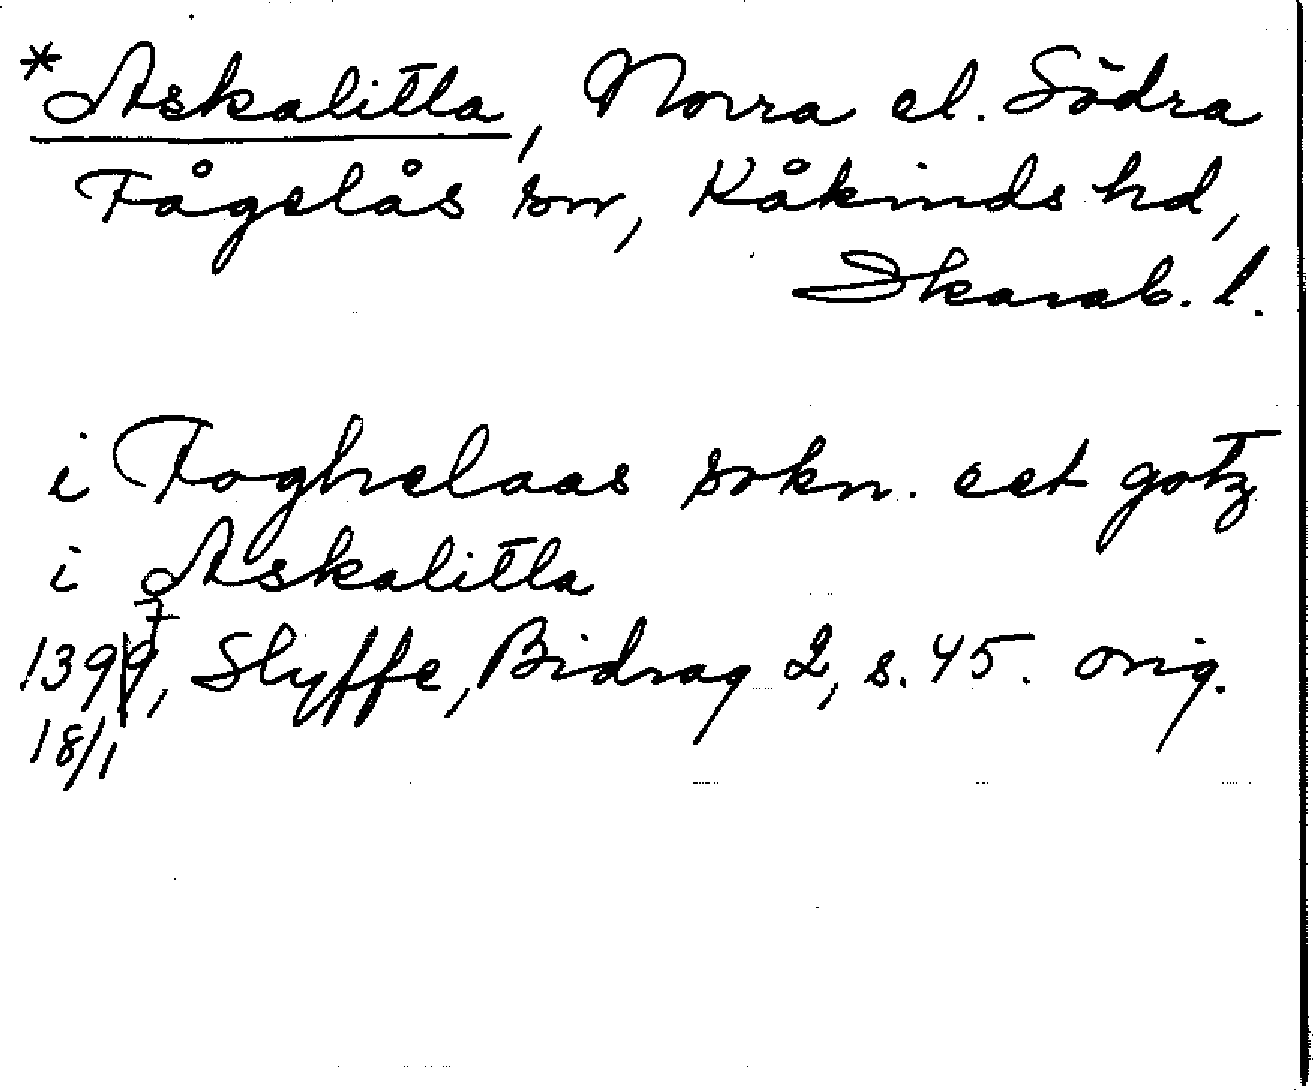 *Askalitla, Norra el. Södra
Fågelås sn, Kåkinds hd,
Skarab. l.
i Foghelaas sokn. eet gotz
i Askalitla
7
1399, Styffe, Bidrag 2, s. 45. orig.
18/1